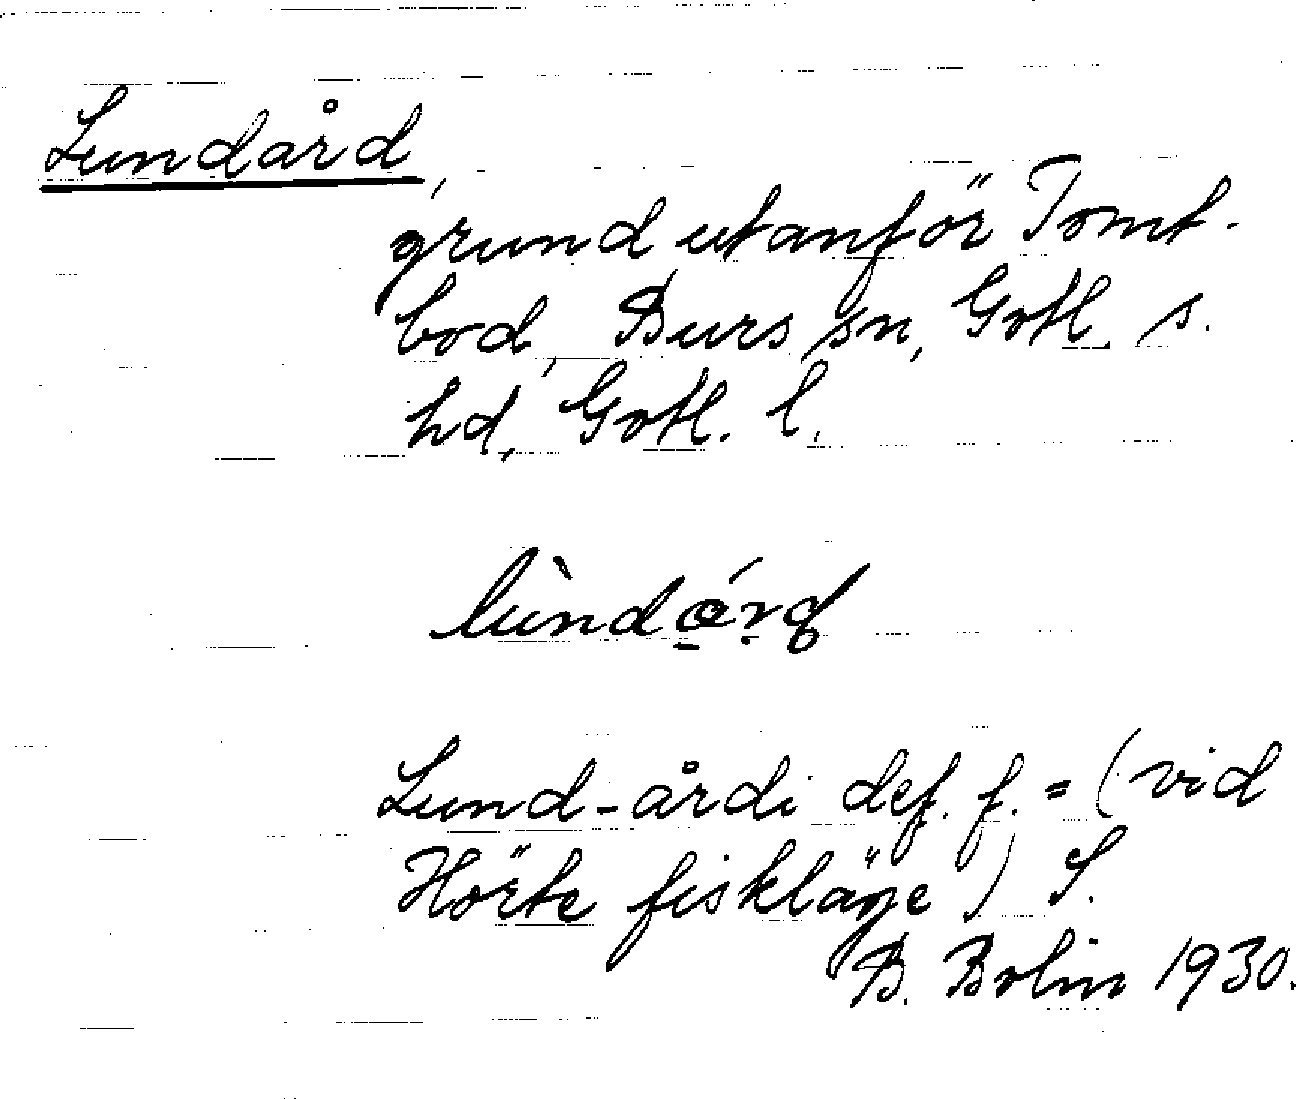 Lundård,
grund utanför Tomt-
bod, Burs sn, Gotl. s.
hd, Gotl. l.
Lund-årdi def. f. = (vid
Hörte fiskläge) S.
B. Bolin 1930.